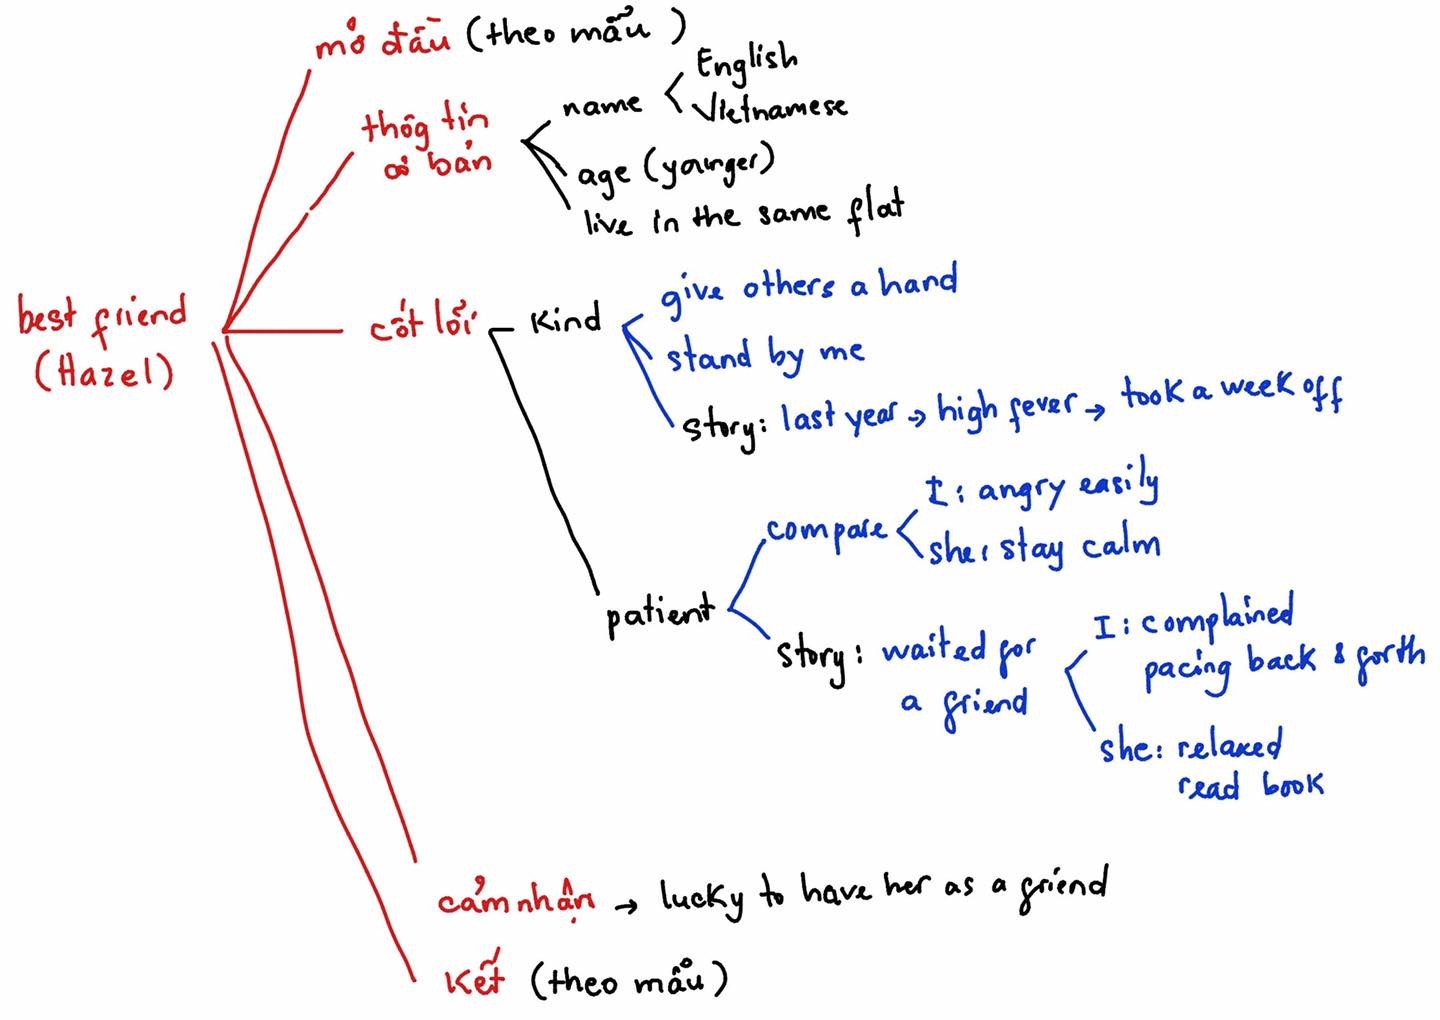 mở đầu (theo mẫu)
thôg tin
cơ bản
name
English
Vietnamese
age (younger)
live in the same flat
best friend
(Hazel)
cốt lõi
Kind
give others a hand
stand by me
story: last year → high fever → took a week off
patient
compare
I: angry easily
she: stay calm
story: waited for
a friend
I: complained
pacing back & forth
she: relaxed
read book
cảm nhận → lucky to have her as a friend
Kết (theo mẫu)